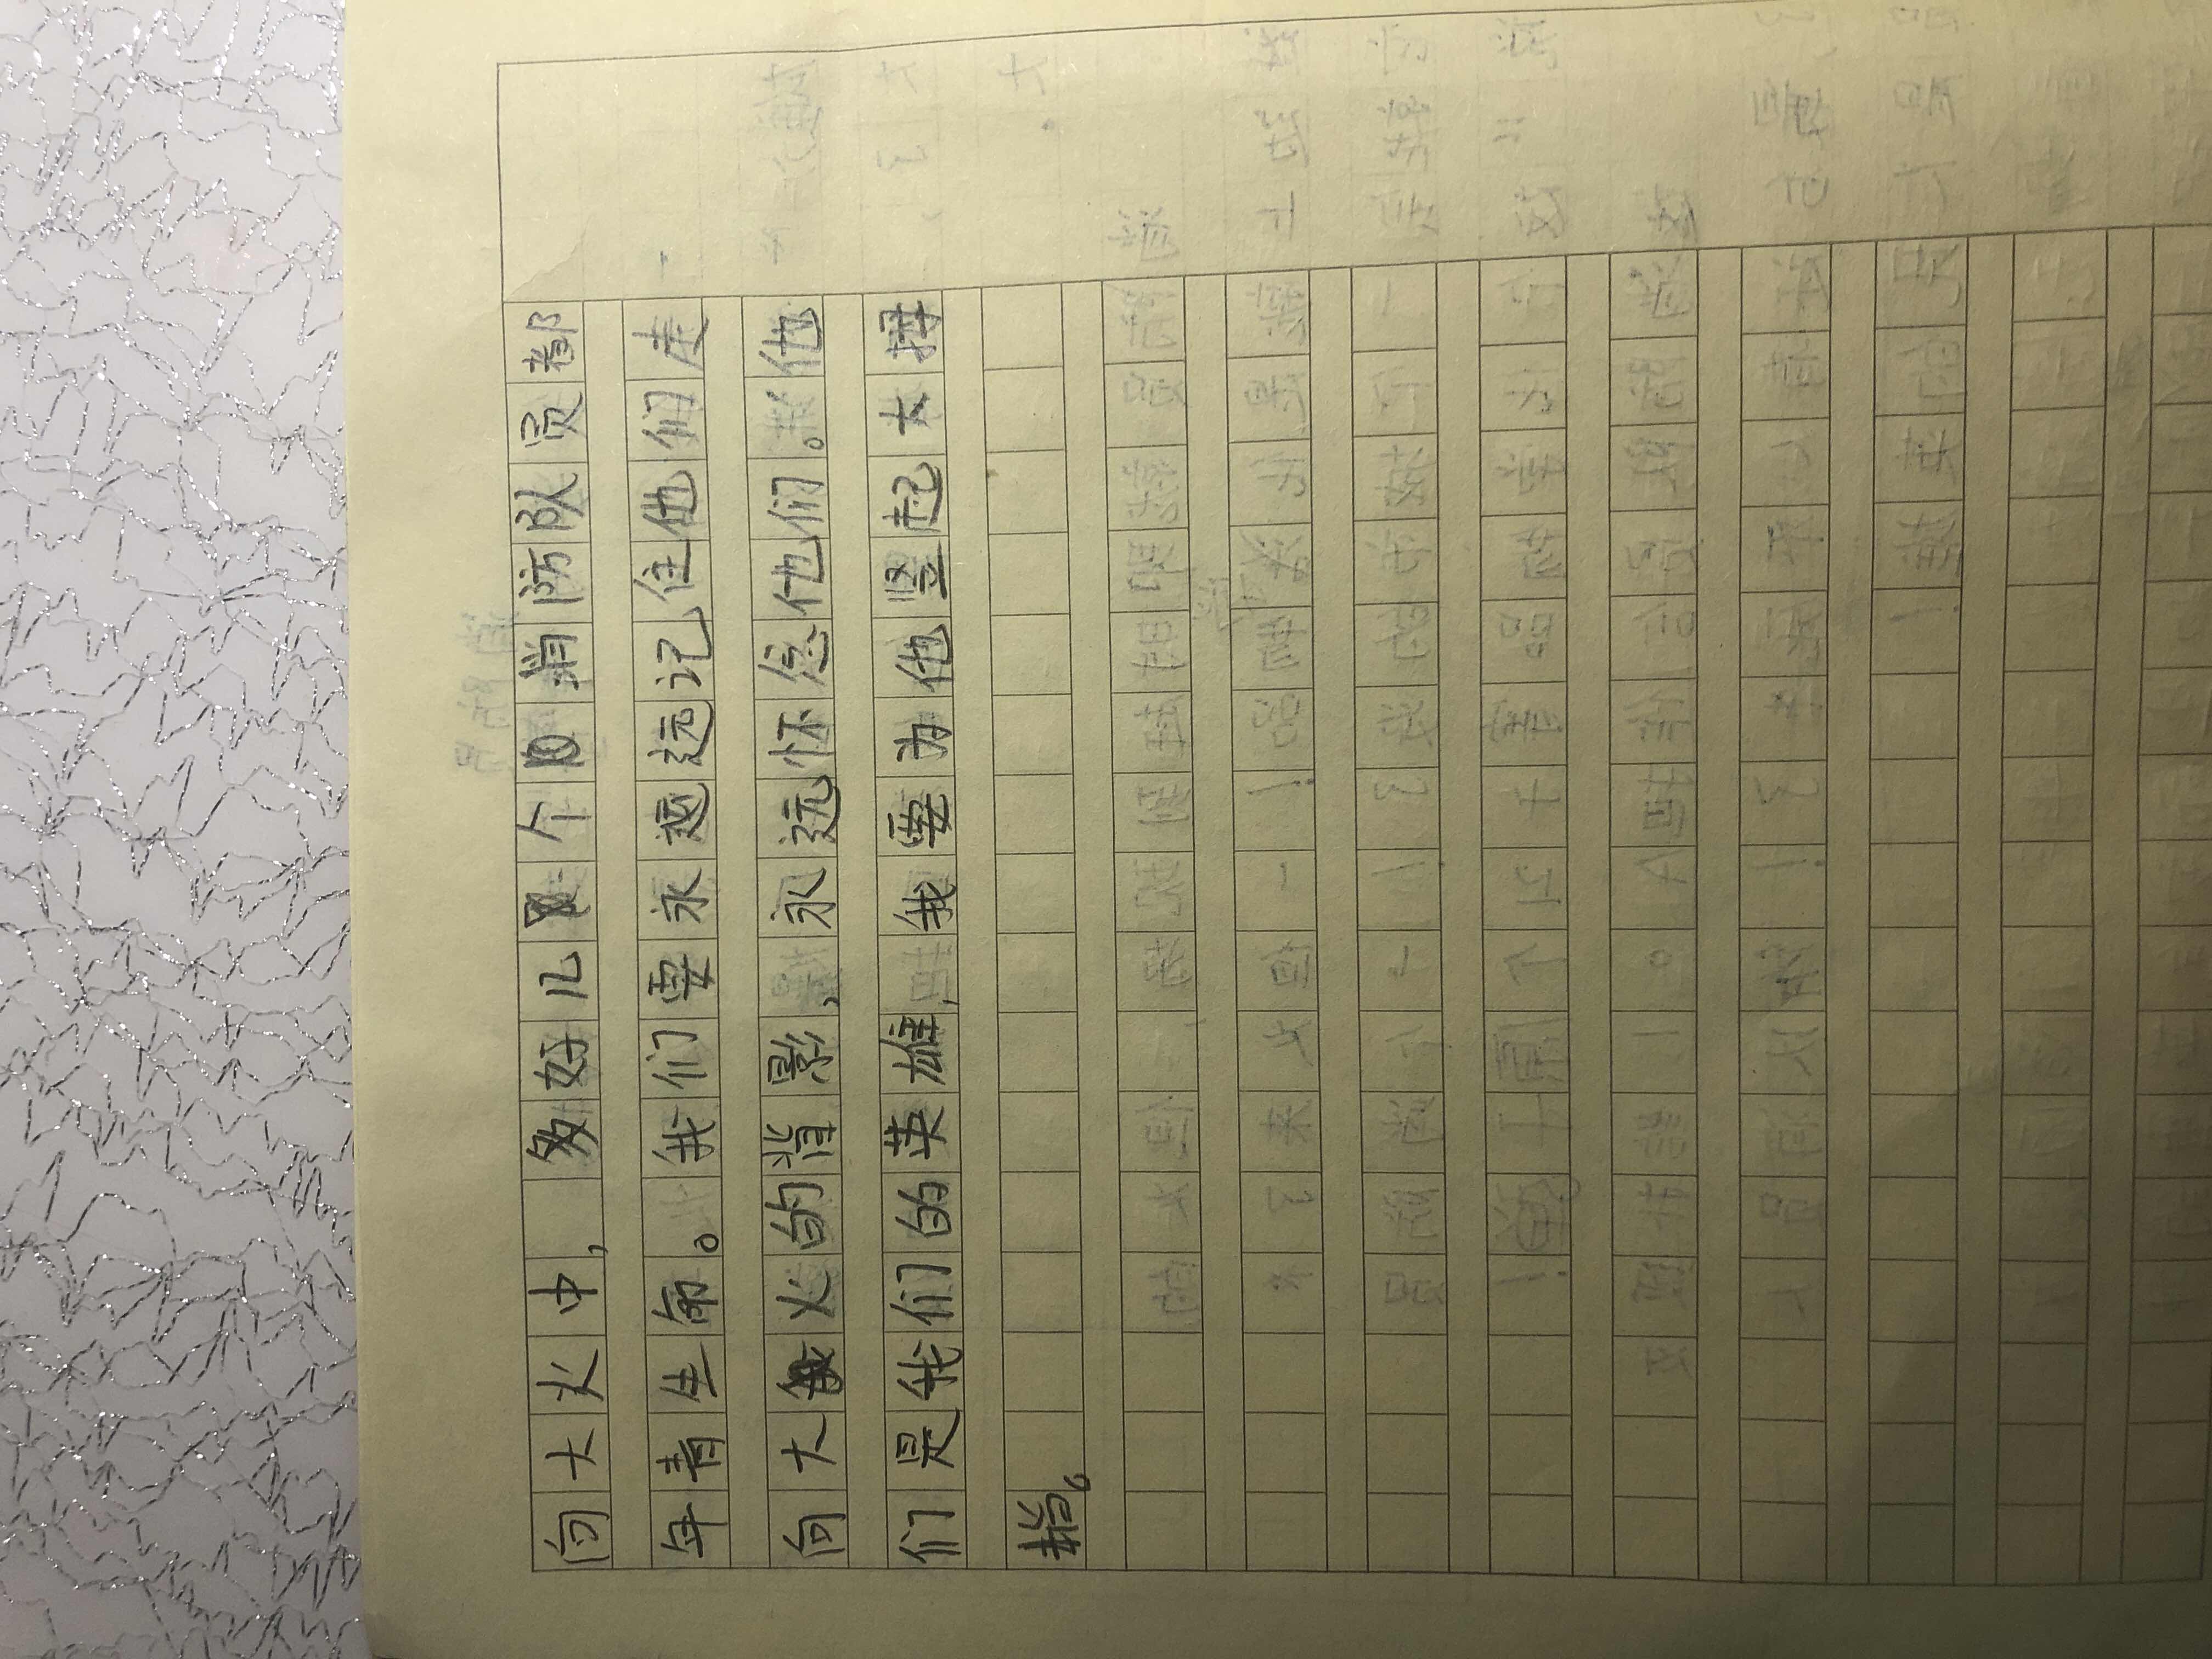 向大火中，多好几个消防队员都
年青生命。我们要永远远记住他们走
向大火的背影，永远怀念他们。他
们是我们的英雄，我要为他竖起大拇
指。